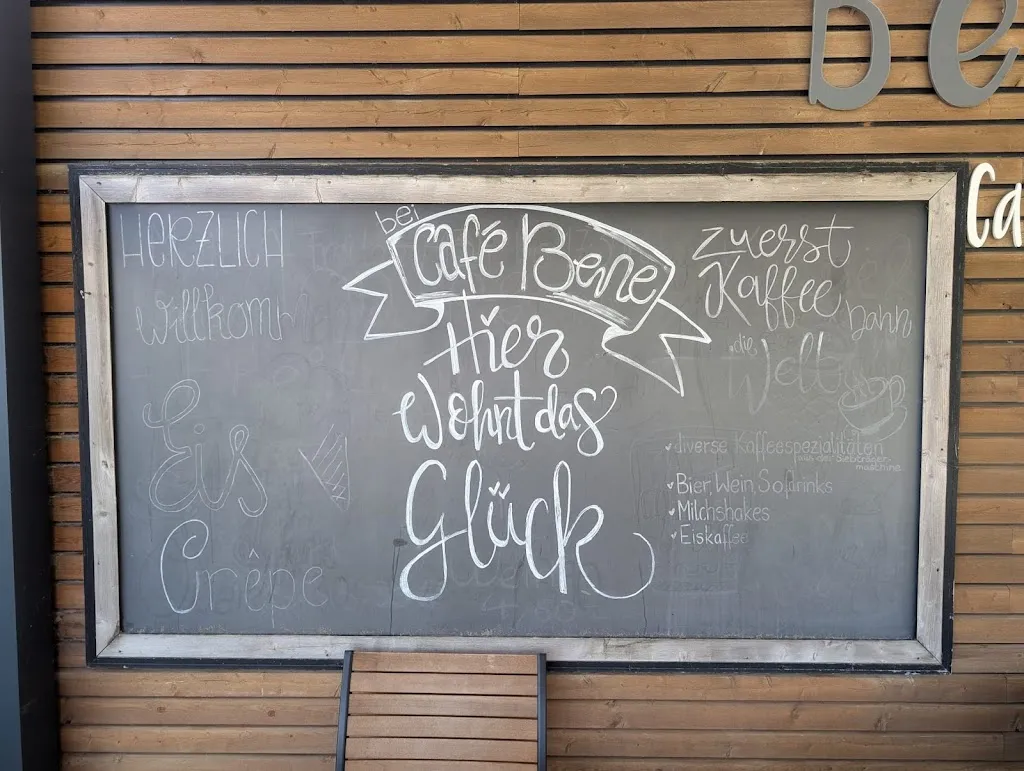 Be
Ca
HERZLICH
Willkomm
Eis
Crêpe
bei
Café Bene
Hier
Wohnt das
Glück
zuerst
Kaffee dann
die Welt
diverse Kaffeespezialitäten
aus der Siebträger-
maschine
Bier, Wein, Softdrinks
Milchshakes
Eiskaffee